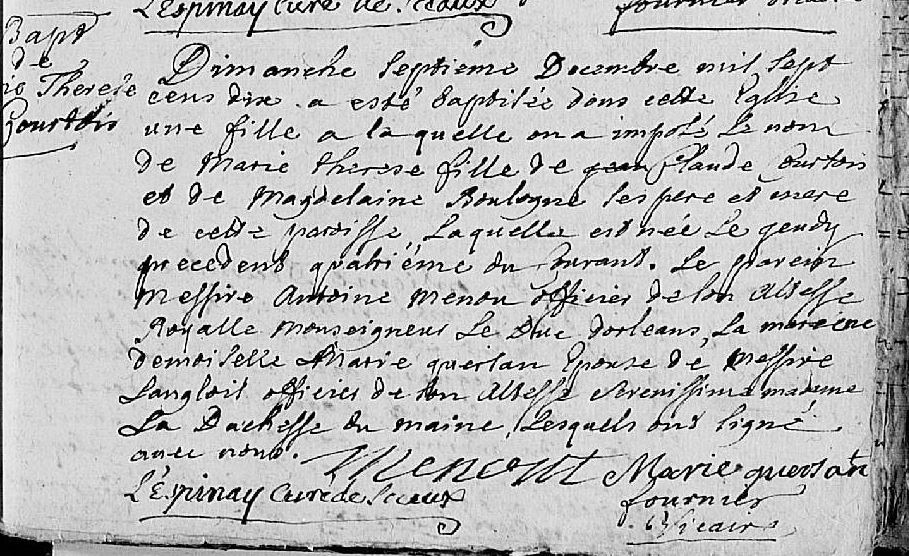 L'Espinay Curé de Sceaux fournier
Bapt
de
Therese
Courtois
Dimanche septieme Decembre mil sept
cens dix a esté baptisée dans cette Eglise
une fille a laquelle on a imposé le nom
de Marie therese fille de Claude Courtois
et de Magdelaine Boulogne ses pere et mere
de cette paroisse Laquelle est née Le jeudy
precedent quatriéme du Courant. Le parein
Messire Antoine Menou officier de son Altesse
Royalle Monseigneur Le Duc dorleans, La mareine
demoiselle Marie quertan Epouse de Messire
Langlois officier de son Altesse Serenissime madame
La Duchesse du maine, Lesquels ont signé
avec nous.
Marie quertan
L'Espinay Curé de Sceaux fournier
Vicaire